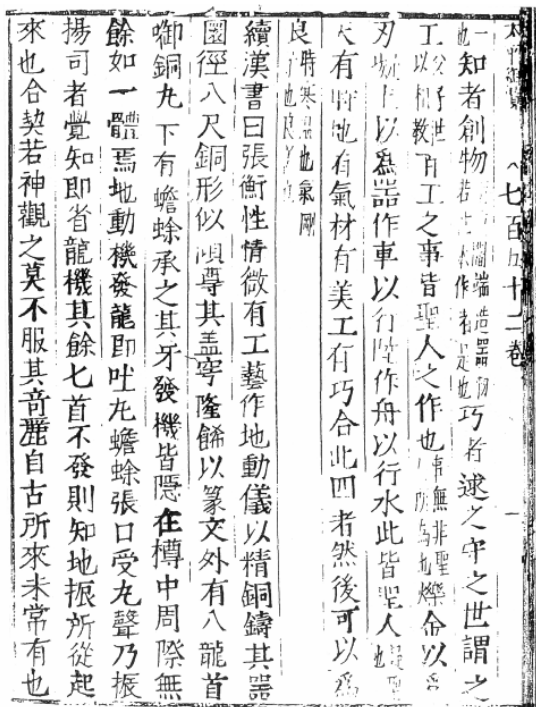 七百五十二卷
一也知者創物闓端造器物若作者是也巧者述之守之世謂之
工父子世以相教百工之事皆聖人之作也事無非聖所為也爍金以為
刃凝土以為器作車以行陸作舟以行水此皆聖人也
天有時地有氣材有美工有巧合此四者然後可以為
良時寒溫也氣剛也良也
續漢書曰張衡性情微有工藝作地動儀以精銅鑄其噐
圎徑八尺銅形似順尊其盖穹隆餙以篆文外有八龍首
啣銅丸下有蟾蜍承之其牙發機皆隱在樽中周際無
餘如一體焉地動機發龍即吐丸蟾蜍張口受丸聲乃振
揚司者覺知即省龍機其餘七首不發則知地振所從起
來也合契若神觀之莫不服其奇麗自古所來未常有也